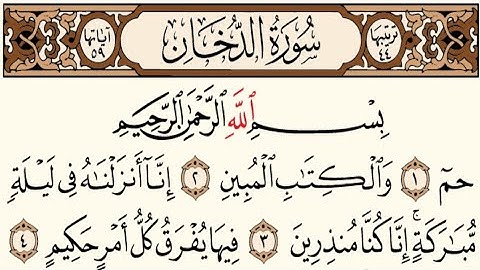 ترتيبها ٤٤ سُورَةُ الدُّخَانِ آياتها ٥٩
بِسْمِ اللَّهِ الرَّحْمَٰنِ الرَّحِيمِ
حمٓ ١ وَالْكِتَابِ الْمُبِينِ ٢ إِنَّا أَنزَلْنَاهُ فِي لَيْلَةٍ
مُّبَارَكَةٍ ۚ إِنَّا كُنَّا مُنذِرِينَ ٣ فِيهَا يُفْرَقُ كُلُّ أَمْرٍ حَكِيمٍ ٤